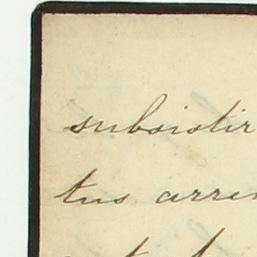 subsistir
tus arre